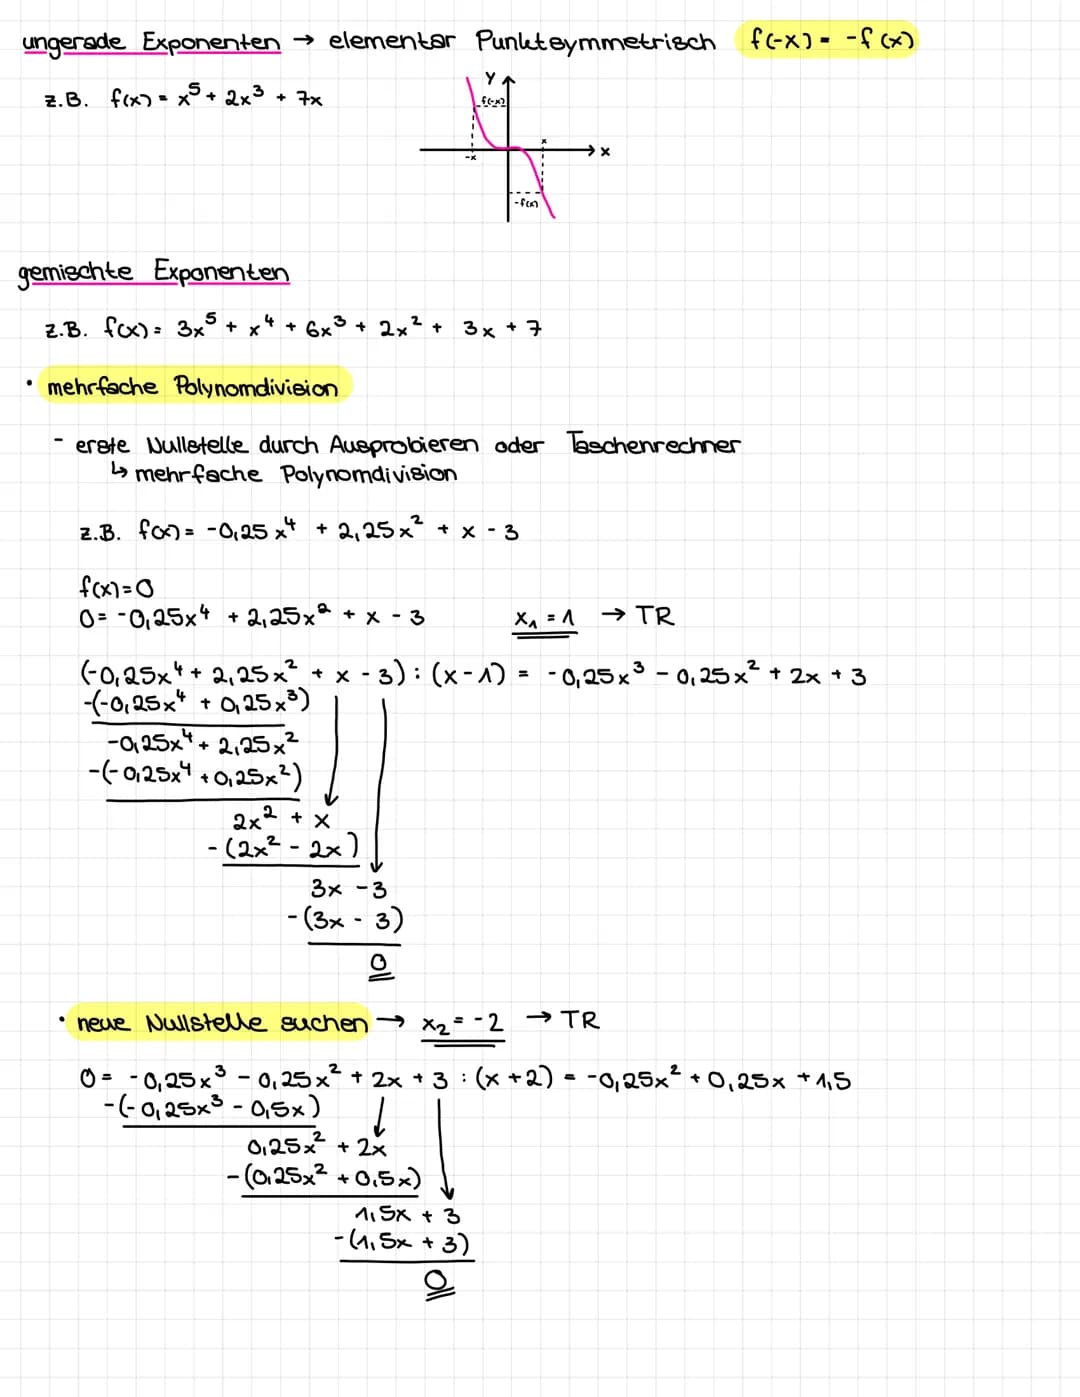 ungerade Exponenten → elementar Punktsymmetrisch f(-x) = -f(x)
z.B. f(x) = x⁵ + 2x³ + 7x
y
f(-x)
x
-x
x
-f(x)
gemischte Exponenten
z.B. f(x) = 3x⁵ + x⁴ + 6x³ + 2x² + 3x + 7
• mehrfache Polynomdivision
- erste Nullstelle durch Ausprobieren oder Taschenrechner
↳ mehrfache Polynomdivision
z.B. f(x) = -0,25x⁴ + 2,25x² + x - 3
f(x)=0
0 = -0,25x⁴ + 2,25x² + x - 3 x₁ = 1 → TR
(-0,25x⁴ + 2,25x² + x - 3) : (x - 1) = -0,25x³ - 0,25x² + 2x + 3
-(-0,25x⁴ + 0,25x³)
-0,25x⁴ + 2,25x²
-(-0,25x⁴ + 0,25x²)
2x² + x
-(2x² - 2x)
3x - 3
-(3x - 3)
0
• neue Nullstelle suchen → x₂ = -2 → TR
0 = -0,25x³ - 0,25x² + 2x + 3 : (x + 2) = -0,25x² + 0,25x + 1,5
-(-0,25x³ - 0,5x)
0,25x² + 2x
-(0,25x² + 0,5x)
1,5x + 3
-(1,5x + 3)
0